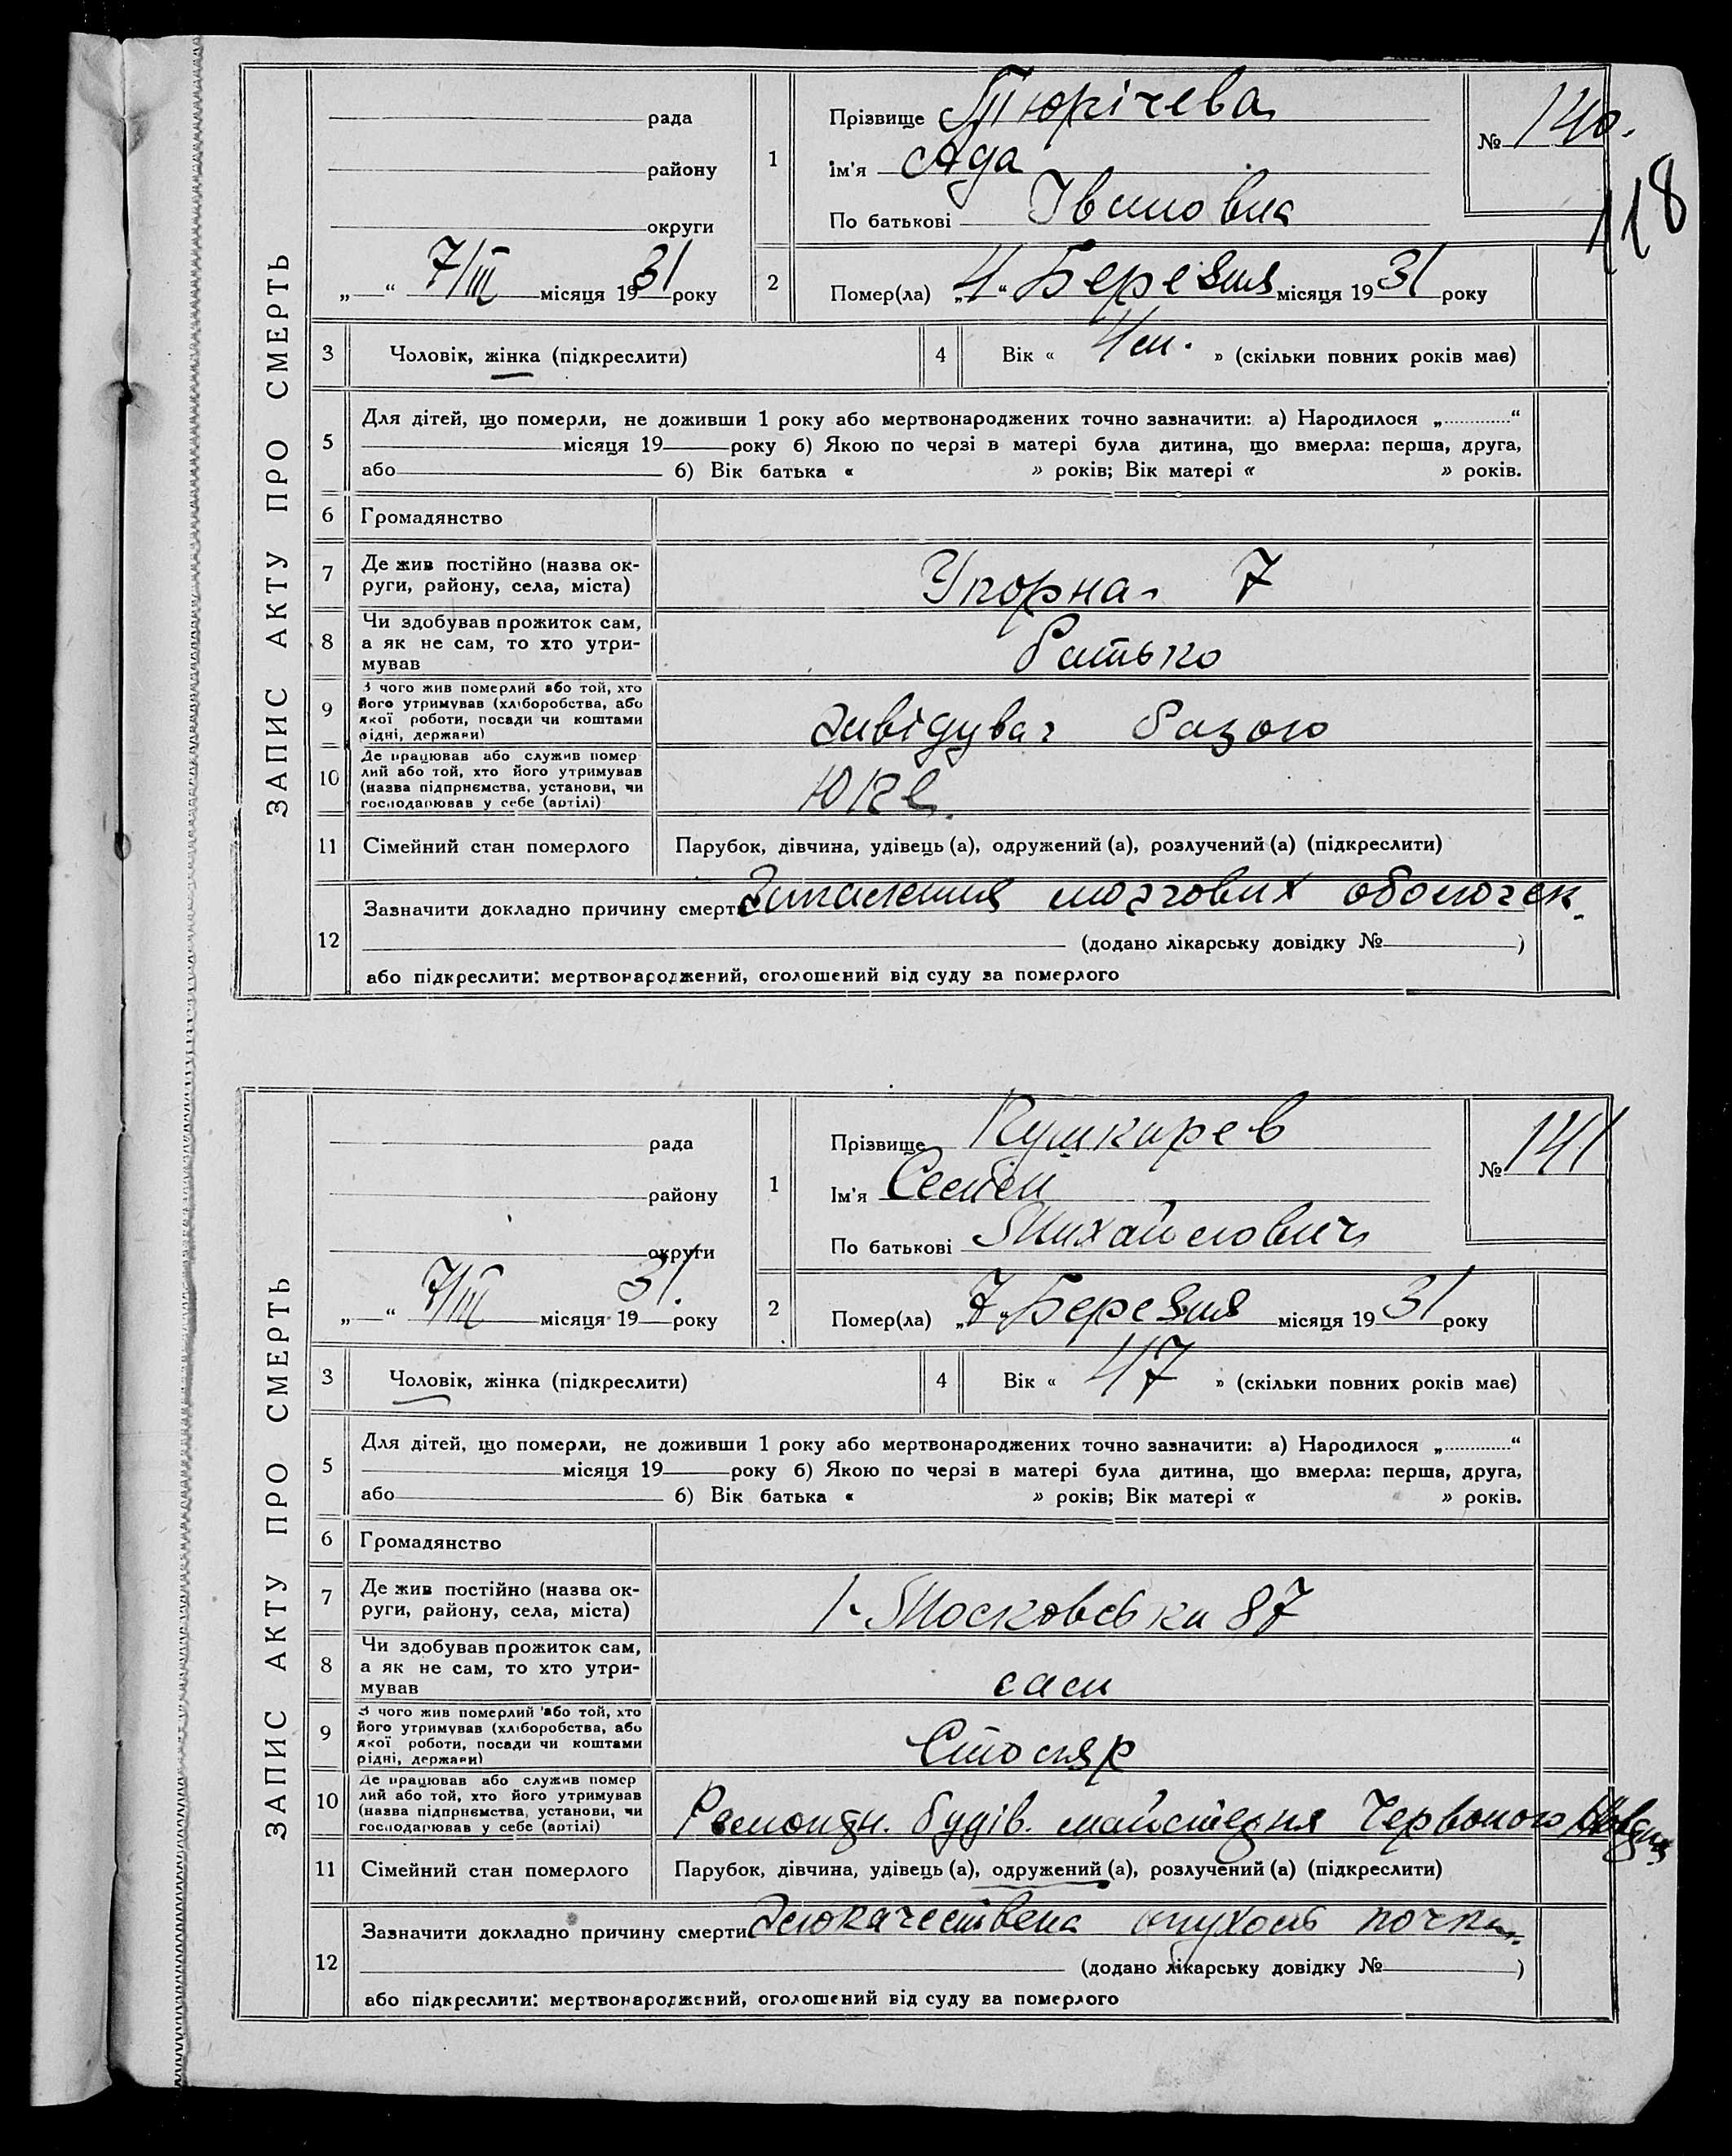 ЗАПИС АКТУ ПРО СМЕРТЬ
рада
району
округи
„—“ 7/III місяця 1931 року
1
Прізвище Тюрічева
Ім'я Ада
По батькові Івановна
№ 140.
118
2
Помер(ла) „4“ Березня місяця 1931 року
3 Чоловік, жінка (підкреслити)
4 Вік « 4 м. » (скільки повних років має)
5
Для дітей, що померли, не доживши 1 року або мертвонароджених точно зазначити: а) Народилося „............“
місяця 19 року б) Якою по черзі в матері була дитина, що вмерла: перша, друга,
або б) Вік батька « » років; Вік матері « » років.
6 Громадянство
7 Де жив постійно (назва ок-
руги, району, села, міста)
Упорна 7
8 Чи здобував прожиток сам,
а як не сам, то хто утри-
мував
батько
9 З чого жив померлий або той, хто
його утримував (хліборобства, або
якої роботи, посади чи коштами
рідні, держави)
Завідувач базою
10 Де працював або служив помер
лий або той, хто його утримував
(назва підприємства, установи, чи
господарював у себе (артілі)
11 Сімейний стан померлого
Парубок, дівчина, удівець (а), одружений (а), розлучений (а) (підкреслити)
12
Зазначити докладно причину смерти Запалення мозгових оболочек.
(додано лікарську довідку № )
або підкреслити: мертвонароджений, оголошений від суду за померлого
ЗАПИС АКТУ ПРО СМЕРТЬ
рада
району
округи
„—“ 7/III місяця 1931. року
1
Прізвище Пушкарев
Ім'я Семен
По батькові Михайлович
№ 141
2
Помер(ла) „7“ Березня місяця 1931 року
3 Чоловік, жінка (підкреслити)
4 Вік « 47 » (скільки повних років має)
5
Для дітей, що померли, не доживши 1 року або мертвонароджених точно зазначити: а) Народилося „............“
місяця 19 року б) Якою по черзі в матері була дитина, що вмерла: перша, друга,
або б) Вік батька « » років; Вік матері « » років.
6 Громадянство
7 Де жив постійно (назва ок-
руги, району, села, міста)
1-Московська 87
8 Чи здобував прожиток сам,
а як не сам, то хто утри-
мував
сам
9 З чого жив померлий або той, хто
його утримував (хліборобства, або
якої роботи, посади чи коштами
рідні, держави)
Столяр
10 Де працював або служив помер
лий або той, хто його утримував
(назва підприємства, установи, чи
господарював у себе (артілі)
Ремонтн. будів. майстерня Червоного
11 Сімейний стан померлого
Парубок, дівчина, удівець (а), одружений (а), розлучений (а) (підкреслити)
12
Зазначити докладно причину смерти Злокачествена опухоль почки.
(додано лікарську довідку № )
або підкреслити: мертвонароджений, оголошений від суду за померлого